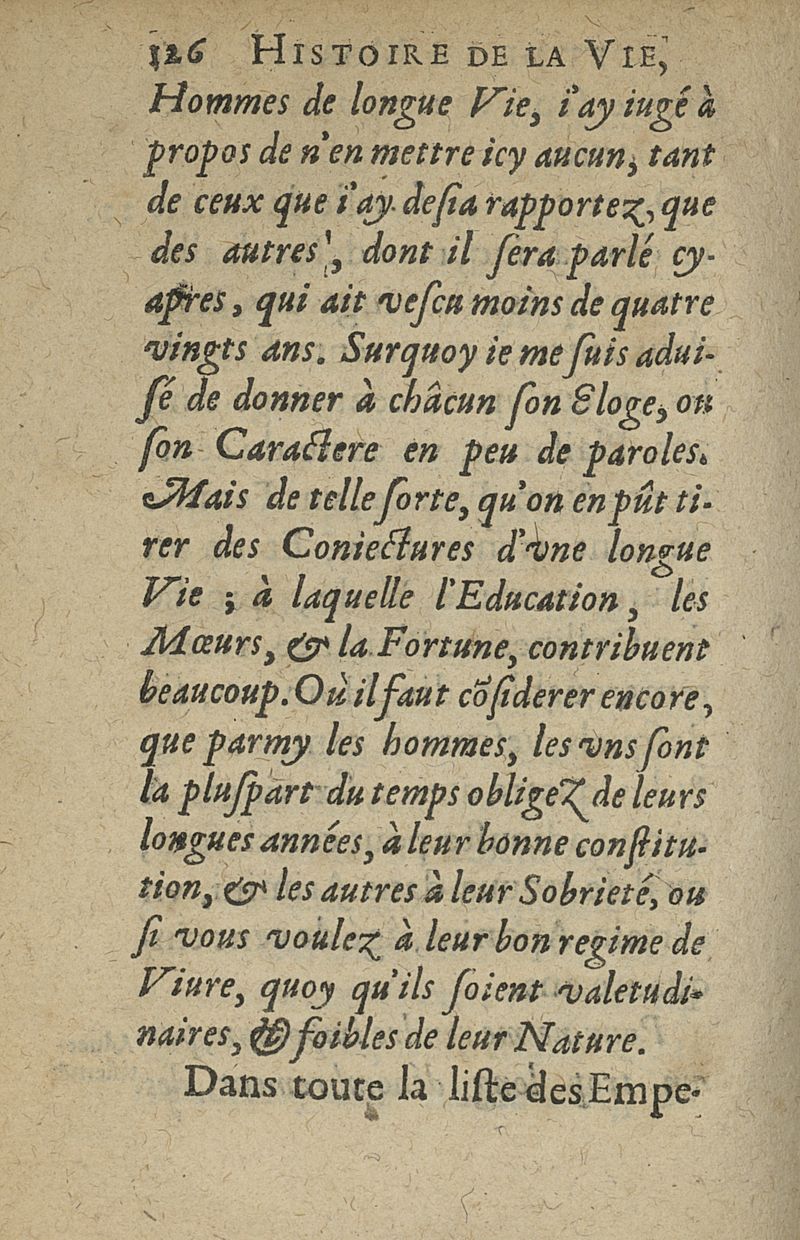 126 HISTOIRE DE LA VIE,
Hommes de longue Vie, i'ay iugé à
propos de n'en mettre icy aucun, tant
de ceux que i'ay deſia rapportez, que
des autres, dont il ſera parlé cy-
apres, qui ait veſcu moins de quatre
vingts ans. Surquoy ie me ſuis adui-
ſé de donner à châcun ſon Eloge, ou
ſon Caractere en peu de paroles.
Mais de telle ſorte, qu'on en pût ti-
rer des Coniectures d'vne longue
Vie ; à laquelle l'Education, les
Mœurs, & la Fortune, contribuent
beaucoup. Où il faut cõſiderer encore,
que parmy les hommes, les vns ſont
la pluſpart du temps obligez de leurs
longues années, à leur bonne conſtitu-
tion, & les autres à leur Sobrieté, ou
ſi vous voulez à leur bon regime de
Viure, quoy qu'ils ſoient valetudi-
naires, & foibles de leur Nature.
Dans toute la liſte des Empe-